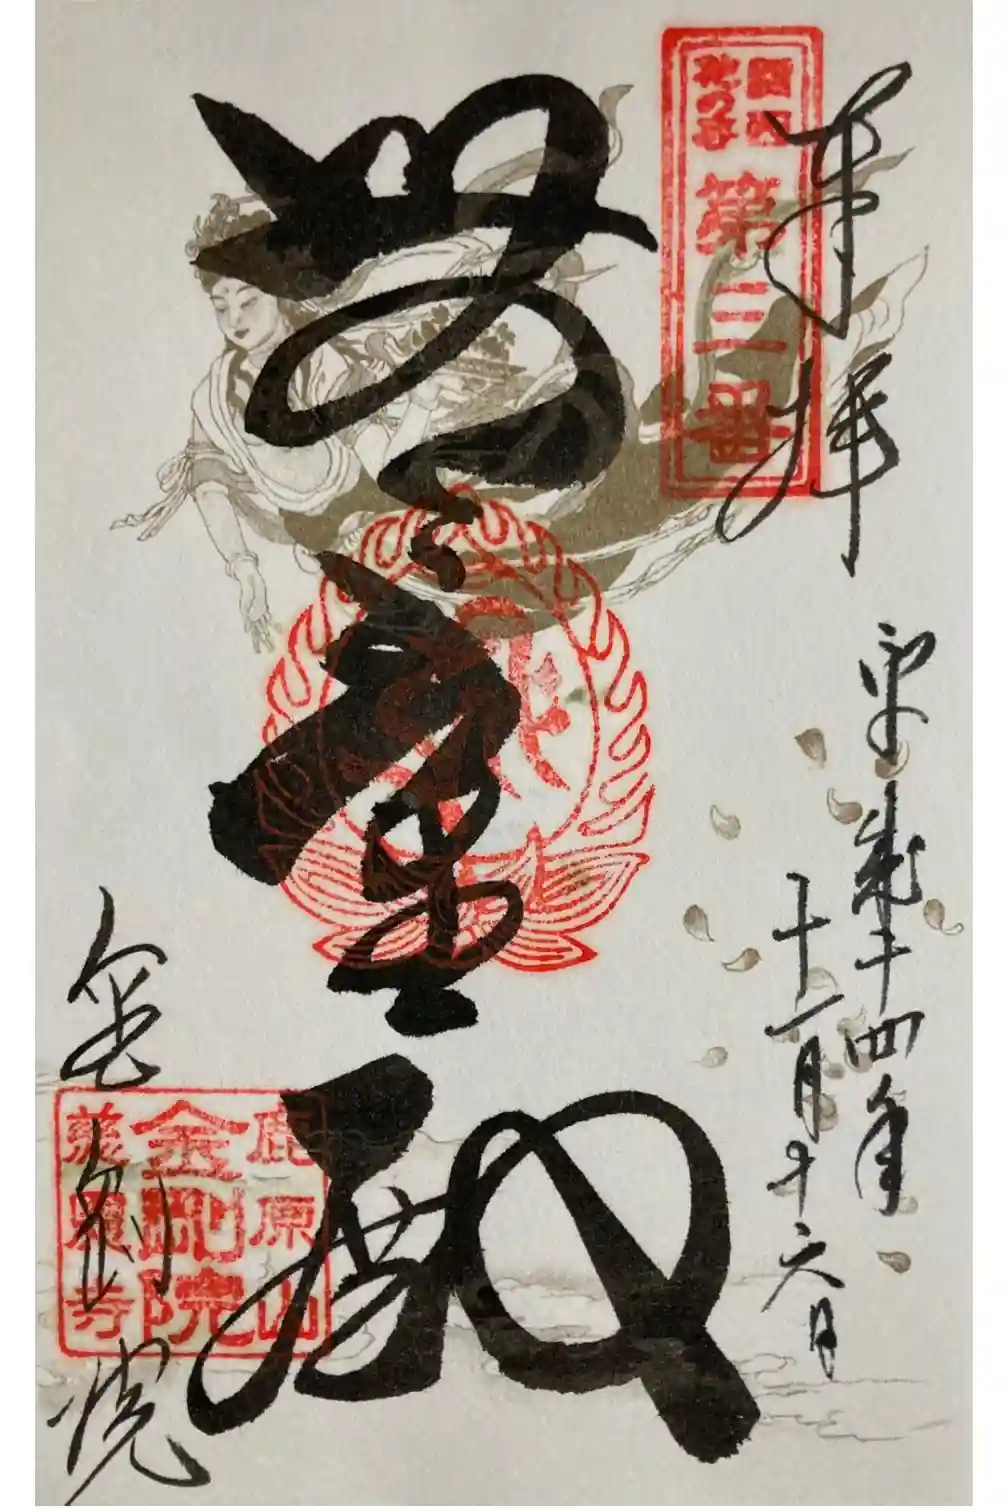 奉拝
関西
花の寺
第三番
平成二十四年
十一月十六日
無量
鹿原山
金剛院
慈恩寺
金剛院